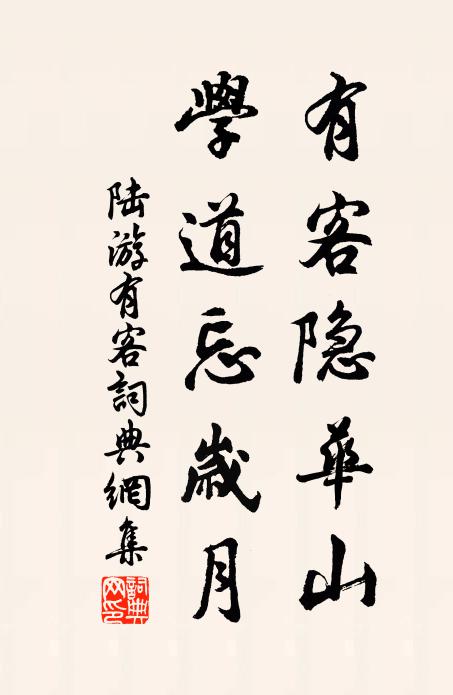 有客隐華山
學道忘歲月
陆游有客詞典網集
詞典網印